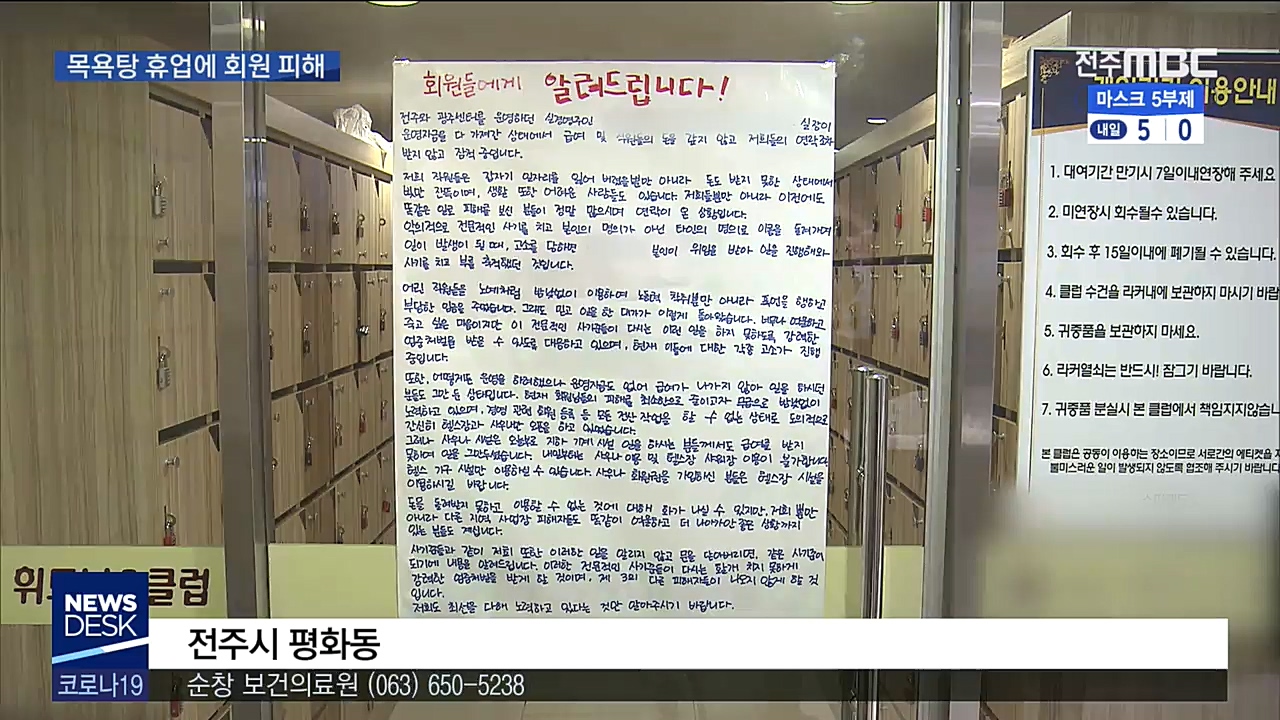 목욕탕 휴업에 회원 피해
전주MBC
마스크 5부제
내일 5 0
회원들에게 알려드립니다!
전주와 광주센터를 운영하던 실경영주인 실장이
운영자금을 다 가져간 상태에서 급여 및 직원들의 돈을 갚지 않고 저희들의 연락조차
받지 않고 잠적 중입니다.
저희 직원들은 갑자기 일자리를 잃어 버렸을뿐만 아니라 돈도 받지 못한 상태에서
빚만 잔뜩이며, 생활 또한 어려운 사람들도 있습니다. 저희들뿐만 아니라 이전에도
똑같은 일로 피해를 보신 분들이 정말 많으시며 연락이 온 상황입니다.
전문적인 사기를 치고 본인의 명의가 아닌 타인의 명의로 이름을 돌려가며
일이 발생이 될 때, 고소를 당하면 본인이 위임을 받아 일을 진행해와
사기를 치고 부를 축적했던 것입니다.
어린 직원들을 노예처럼 방법없이 이용하여 노동력 착취뿐만 아니라 폭언을 행하고
부당한 임금을 주었습니다. 그래도 믿고 일을 한 대가가 이렇게 돌아왔습니다. 너무나 억울하고
죽고 싶은 마음이지만 이 전문적인 사기꾼들이 다시는 이런 일을 하지 못하도록 강력한
엄중처벌을 받을 수 있도록 대응하고 있으며, 현재 이들에 대한 각종 고소가 진행
중입니다.
또한, 어떻게든 운영을 하려했으나 운영자금도 없어 급여가 나가지 않아 일을 하시던
분들도 그만 둔 상태입니다. 현재 회원님들의 피해를 최소한으로 줄이고자 무급으로 방법없이
노력하고 있으며, 경영 관련 회원 등록 등 모든 전산 작업을 할 수 없는 상태로 도의적으로
간신히 헬스장과 사우나만 오픈을 하고 있었습니다.
그러나 사우나 시설은 오늘부로 지하 기계 시설 일을 하시는 분들께서도 급여를 받지
못하여 일을 그만두셨습니다. 내일부터는 사우나 이용 및 헬스장 샤워장 이용이 불가합니다.
헬스 기구 시설만 이용하실 수 있습니다. 사우나 회원권을 가입하신 분들은 헬스장 시설을
이용하시길 바랍니다.
돈을 돌려받지 못하고 이용할 수 없는 것에 대해 화가 나실 수 있지만, 저희 뿐만
아니라 다른 지역 사업장 피해자들도 똑같이 억울하고 더 나아가 안 좋은 상황까지
있는 분들도 계십니다.
사기꾼들과 같이 저희 또한 이러한 일을 알리지 않고 문을 닫아버리면, 같은 사기꾼이
되기에 내용을 알려드립니다. 이러한 전문적인 사기꾼들이 다시는 활개 치지 못하게
강력한 엄중처벌을 받게 할 것이며, 제 3의 다른 피해자들이 나오지 않게 할 것
입니다.
저희도 최선을 다해 노력하고 있다는 것만 알아주시기 바랍니다.
이용안내
1. 대여기간 만기시 7일이내연장해 주세요
2. 미연장시 회수될수 있습니다.
3. 회수 후 15일이내에 폐기될 수 있습니다.
4. 클럽 수건을 라커내에 보관하지 마시기 바랍
5. 귀중품을 보관하지 마세요.
6. 라커열쇠는 반드시! 잠그기 바랍니다.
7. 귀중품 분실시 본 클럽에서 책임지지않습
본 클럽은 공동이 이용하는 장소이므로 서로간의 에티켓을 지
불미스러운 일이 발생되지 않도록 협조해 주시기 바랍니
휘 클럽
NEWS
DESK
전주시 평화동
코로나19
순창 보건의료원 (063) 650-5238